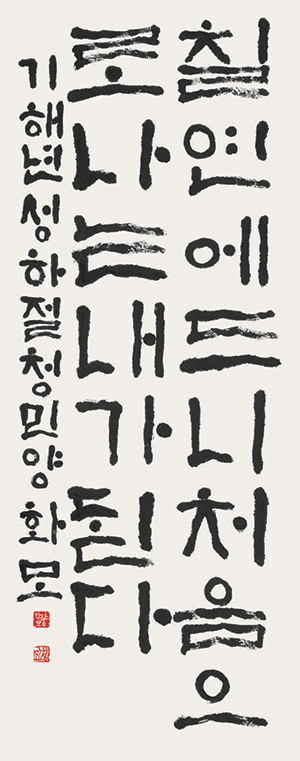 칠연에드니처음으
로나는내가된다
기해년성하절청민양화모